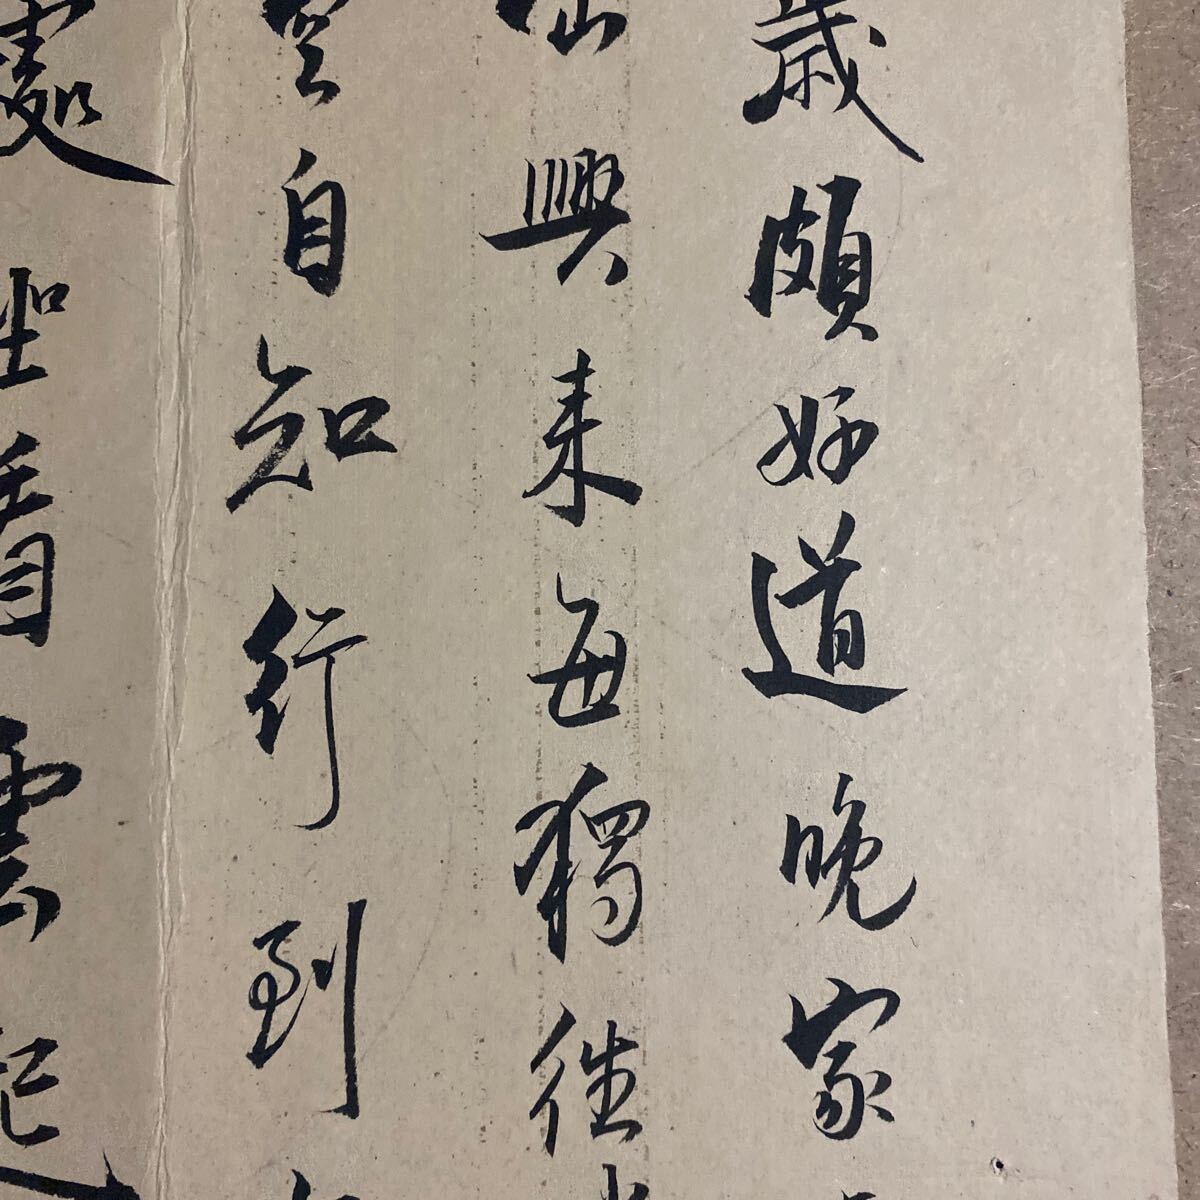 歳頗好道晚家
興来每獨往
空自知行到
處坐看雲起